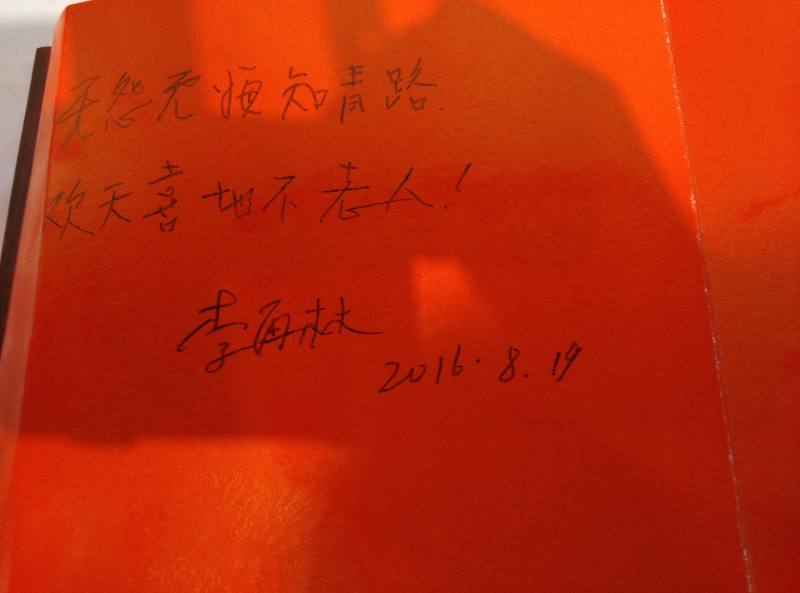 无怨无悔知青路.
欢天喜地不老人!
李再林
2016.8.19